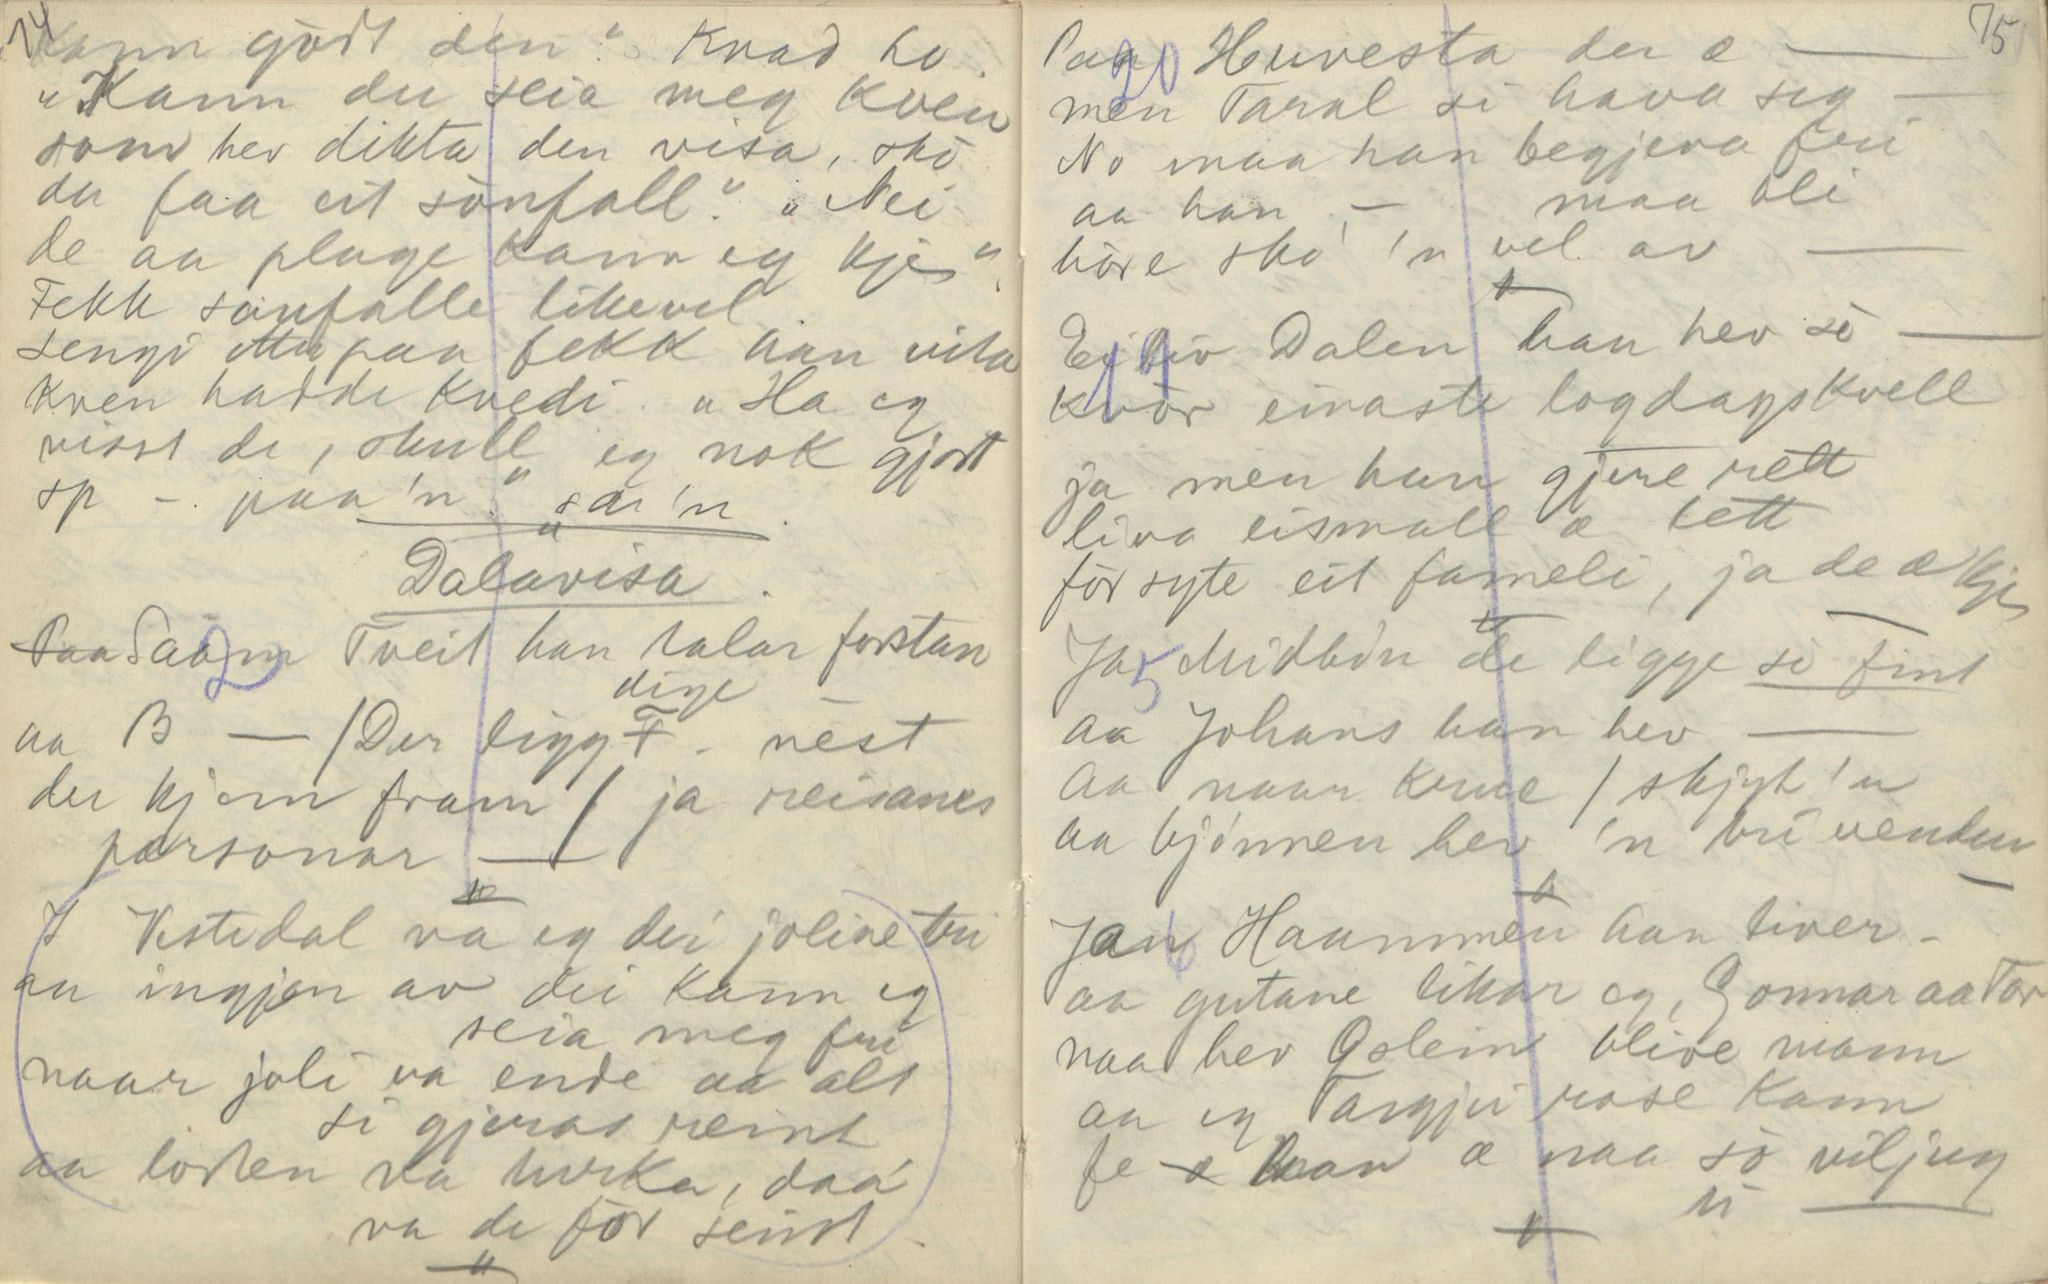 74
kann godt den." Kvad ho.
"Kann du seia meg kven
som hev dikta den visa, sko
du faa eit sónfall." "Nei
de aa plage kann eg kje"
Fekk sónfalle likevel.
Sengi etter paa fekk han vita
kven hadde kvedi. "Ha eg
visst de, skull eg nok gjort
sp - paa 'n" sa 'n.
"
Dalavisa.
Paa Tveit han talar forstan
dige
aa B — / Der ligg F - nest
du kjem fram / ja reisanes
personar —
"
I Vestedal va eg dei joline tri
aa ingjen av dei kann eg
seia meg fri
naar joli va ende aa alt
si gjeras reint
aa losten va turka, daa
va de for seint.
"
75
Paa 20 Huvesta der æ —
men Taral si hava seg —
No maa han begjeva fri
aa han - maa bli
höre sko 'n vel av —
"
11 Dalen han hev so —
kvor einaste logdagskvell
ja men han gjere rett
liva eismall æ lett
for syte eit fameli, ja de æ kje
"
Ja 5 Midbön de ligge so fint
aa Johans han hev —
aa naar krue / skjyt 'n
aa bjönnen hev 'n tri venden
"
Jan 6 Haammen han liver -
aa gutane likar eg, Gonnar aa Tor
naa hev Oslein blive mann
aa eg Targjei rose kann
fe han æ naa so viljug
ti —
"